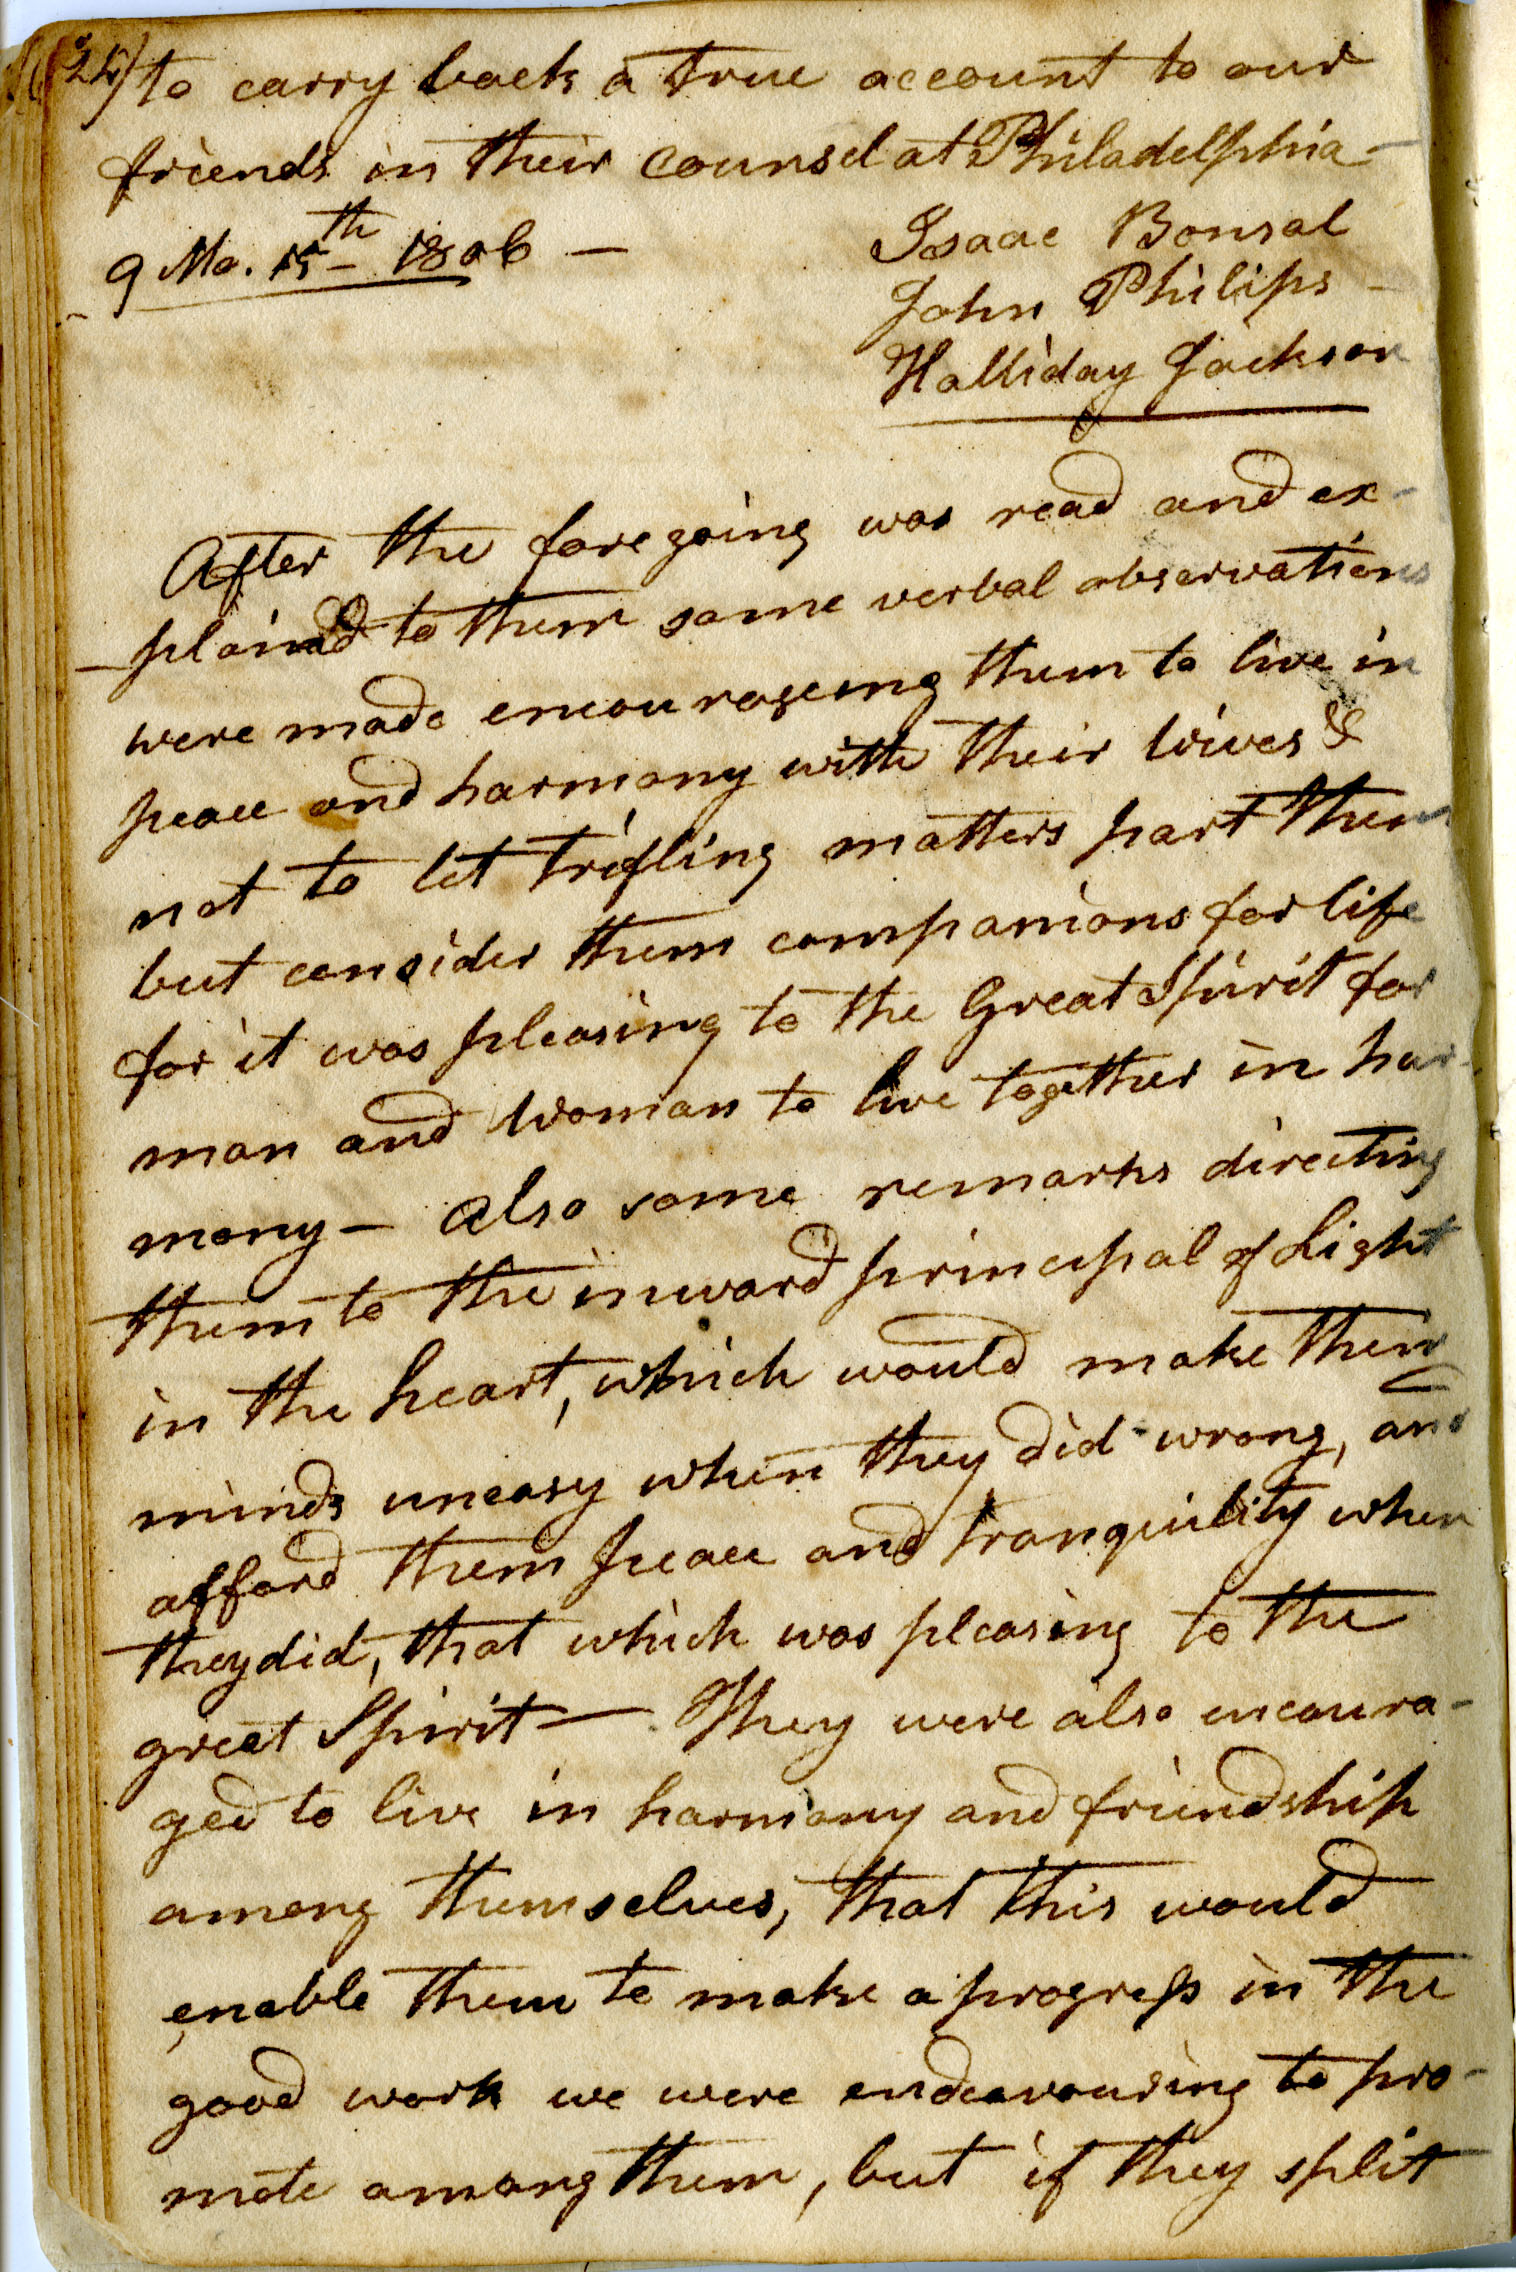 to carry back a true account to our
friends in their counsel at Philadelphia —
9 Mo. 15th — 1806 —
Isaac Bonsal
John Philips —
Halliday Jackson
After the foregoing was read and ex-
-plained to them some verbal observations
were made encourageing them to live in
peace and harmony with their wives &
not to let trifling matters part them
but consider them companions for life
for it was pleasing to the Great Spirit for
man and woman to live together in har-
mony — Also some remarks directing
them to the inward principal of Light
in the heart, which would make their
minds uneasy when they did wrong, and
afford them peace and tranquility when
they did, that which was pleasing to the
great Spirit — They were also encoura-
ged to live in harmony and friendship
among themselves, that this would
enable them to make a progress in the
good work we were endeavouring to pro-
mote among them, but if they split